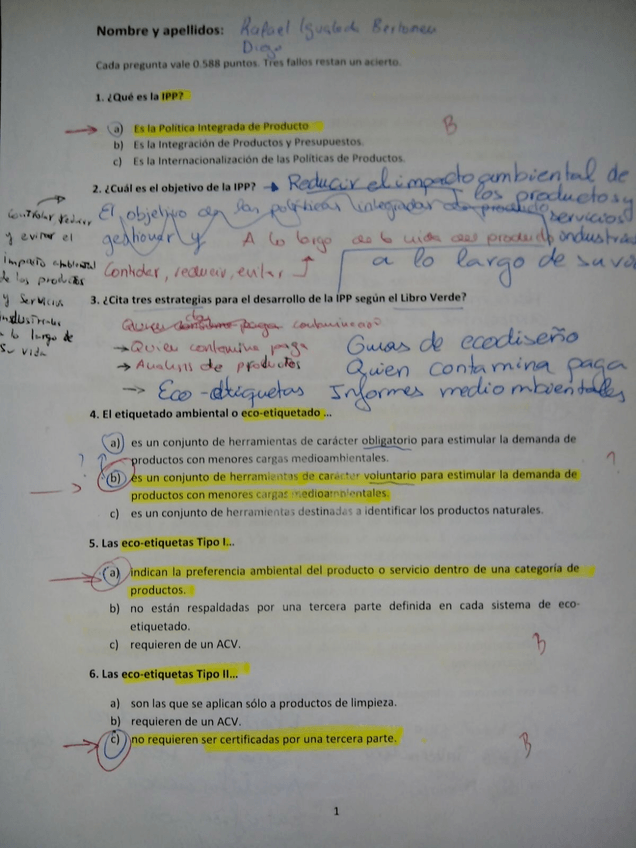 Nombre y apellidos: Rafael Igualada
Diego
Cada pregunta vale 0.588 puntos. Tres fallos restan un acierto.
1. ¿Qué es la IPP?
a) Es la Política Integrada de Producto
B
b) Es la Integración de Productos y Presupuestos.
c) Es la Internacionalización de las Políticas de Productos.
2. ¿Cuál es el objetivo de la IPP? → Reducir el impacto ambiental de
los productos y
servicios
industriales
a lo largo de su vida
El objetivo de las políticas integradas de producto
gestionar y
A lo largo de la vida del producto
Controlar, reducir, evitar
Controlar reducir
y evitar el
impacto ambiental
de los productos
y servicios
industriales
a lo largo de
su vida
3. ¿Cita tres estrategias para el desarrollo de la IPP según el Libro Verde?
Quien paga contaminación
→ Quien contamina paga
→ Analisis de productos
→ Eco-etiquetas
Guias de ecodiseño
Quien contamina paga
Informes mediombientales
4. El etiquetado ambiental o eco-etiquetado ...
a) es un conjunto de herramientas de carácter obligatorio para estimular la demanda de
productos con menores cargas medioambientales.
?
?
b) es un conjunto de herramientas de carácter voluntario para estimular la demanda de
productos con menores cargas medioambientales.
c) es un conjunto de herramientas destinadas a identificar los productos naturales.
5. Las eco-etiquetas Tipo I...
a) indican la preferencia ambiental del producto o servicio dentro de una categoría de
productos.
b) no están respaldadas por una tercera parte definida en cada sistema de eco-
etiquetado.
c) requieren de un ACV.
B
6. Las eco-etiquetas Tipo II...
a) son las que se aplican sólo a productos de limpieza.
b) requieren de un ACV.
c) no requieren ser certificadas por una tercera parte.
B
1